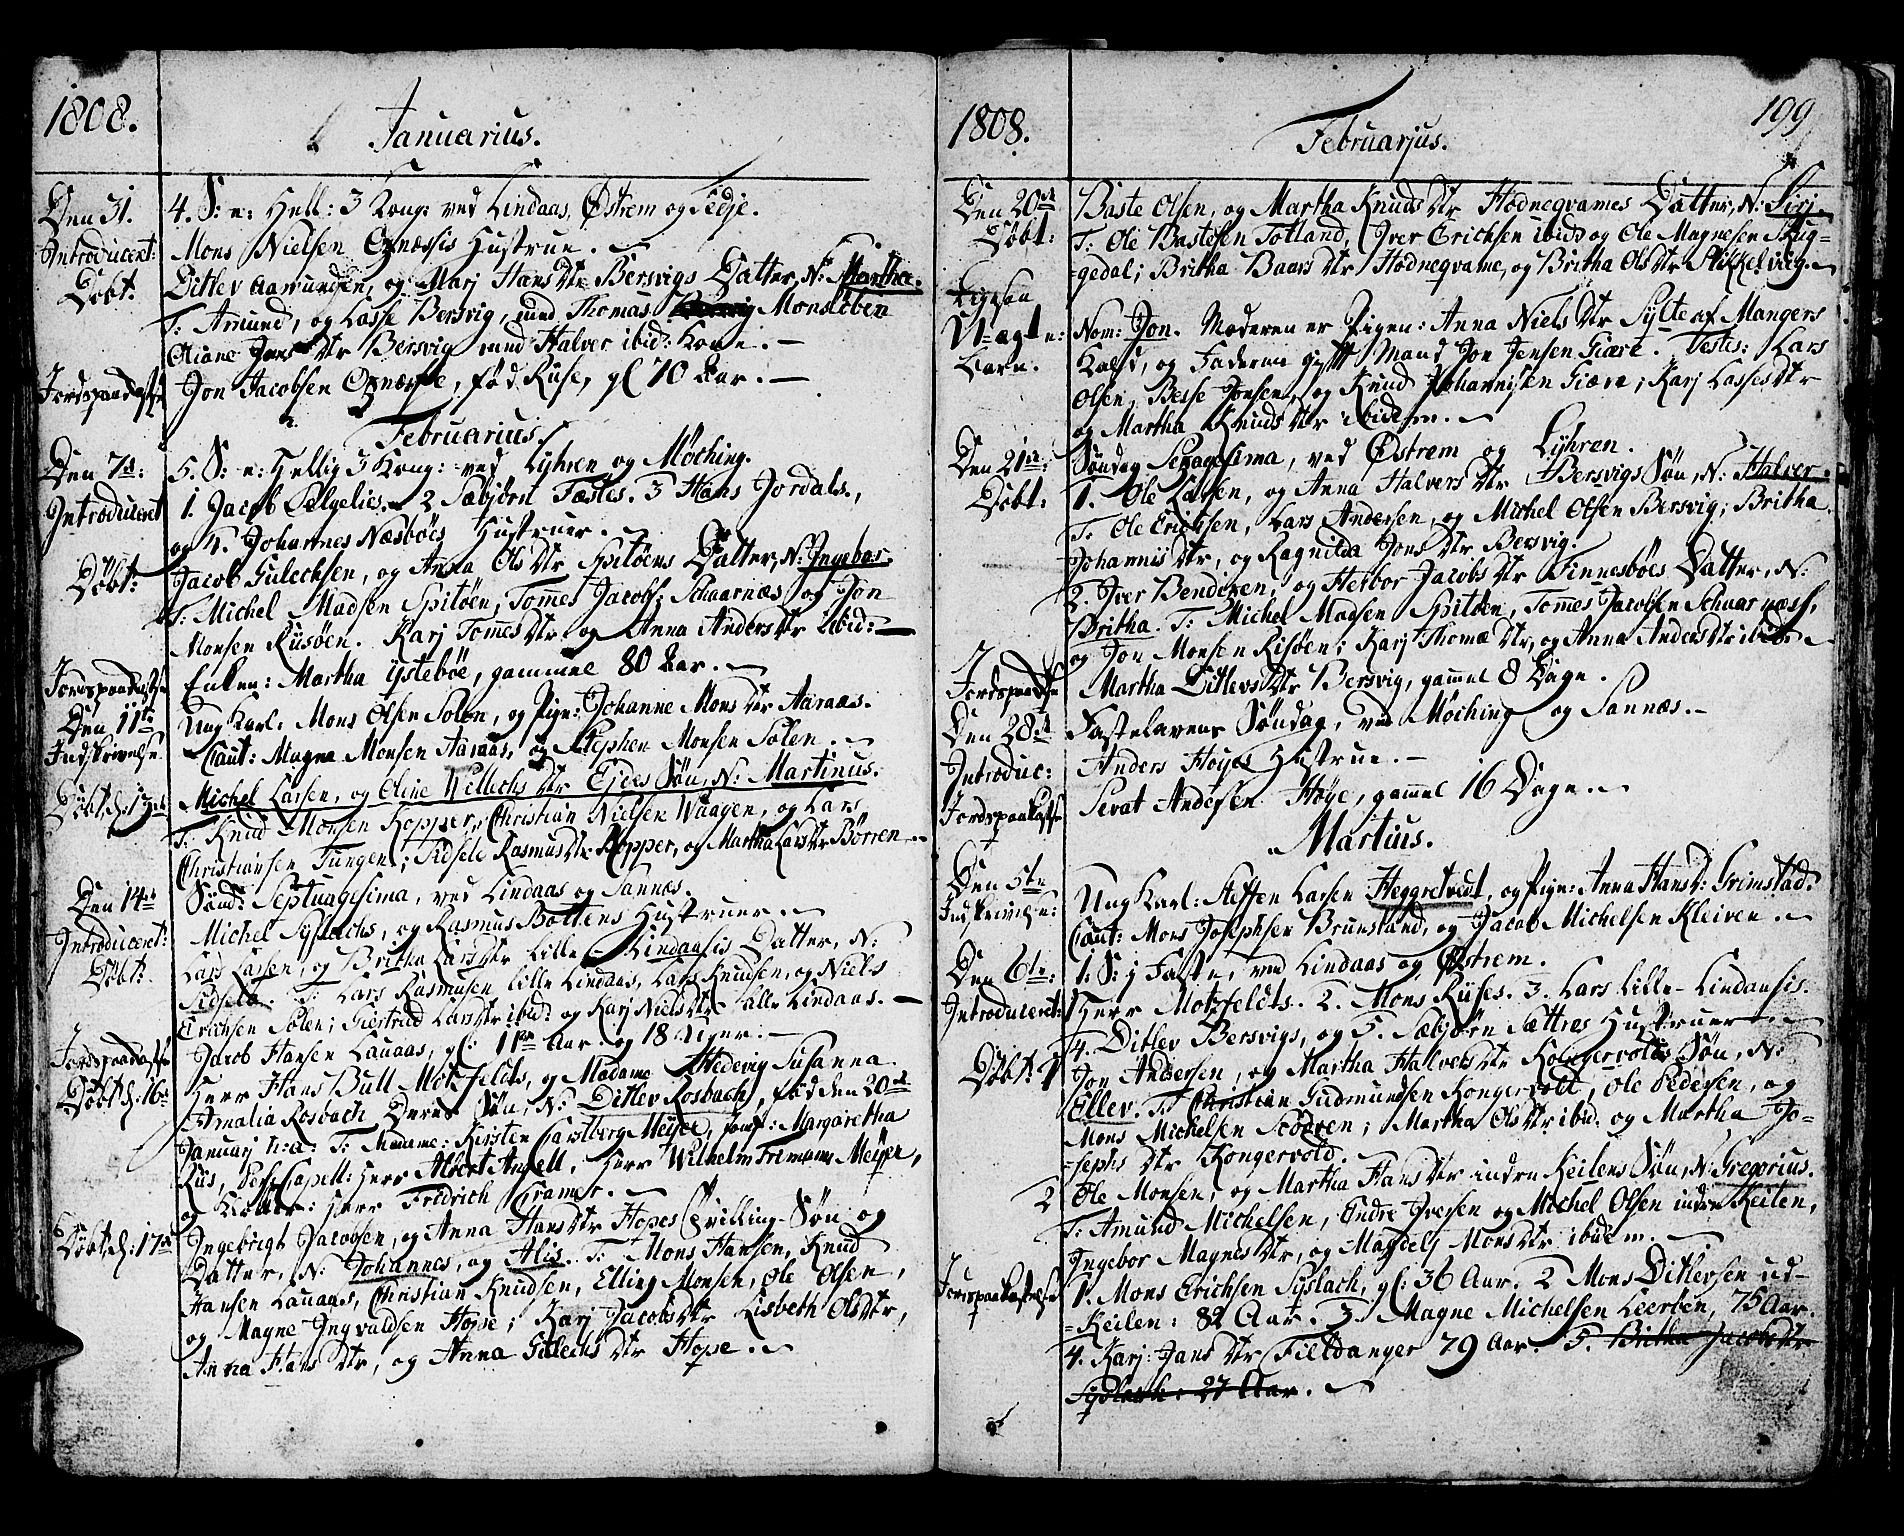 1808.
Januarius.
Den 31. 4. S: e: Hell: 3 Kong: ved Lindaas, Østrem og Fedje.
Introducert: Mons Nielsen Hustrue.
Døbt. Ditlev Aamundsen, og Marj Hans Dtr Bersvigs Datter, N: Martha.
T: Amund, og Lasse Bersvig, und Thomas Monsløben
Oliane Jans Dtr Bersvig und Halver ibid: Kone.
Jordspaakastelse Jon Jacobsen, fød. Ruse, gl 70 Aar.
Februarius.
Den 7d: 5. S: e: Hellig 3 Kong: ved Lyhren og Møching.
Introduceret 1. Jacob Helgelies. 2 Sæbjørn Fæstes. 3 Hans Jordals,
og 4. Johannes Næsbøes Hustruer.
Døbt: Jacob Gulechsen, og Anna Ols Dtr Spitøens Datter, N: Ingebor.
T: Michel Madsen Spitøen, Tommes Jacobs: Skaarnæs og Jon
Monsen Risøen. Karj Tommes Dtr og Anna Anders Dtr ibid:
Jordspaakastelse Enken: Martha Ystebøe, gammel 80 Aar.
Den 11te Ung Karl: Mons Olsen Solen, og Pige: Johanne Mons Dtr Aaraas.
Indskrivelse Caut: Magne Monsen Aaraas, og Stephen Monsen Solen.
Døbt d: 13de Michel Larsen, og Oline Willechs Dtr Eides Søn, N: Martinus.
T: Knud Monsen Kopper, Christian Nielsen Waagen, og Lars
Christiansen Tungen; Sidsele Rasmus Dtr Kopper, og Martha Lars Dtr Børren.
Den 14de Sønd: Septuagesima, ved Lindaas og Sannæs.
Introduceret: Michel Syslachs, og Rasmus Bottens Hustruer.
Døbt: Lars Larsen, og Britha Lars Dtr Lille-Lindaasis Datter, N:
Sidsela. T: Lars Rasmusen Lille Lindaas, Lars Knudsen, og Niels
Erichsen Solen; Giertrud Lars Dtr ibid: og Karj Niels Dtr Lille Lindaas.
Jordspaakastelse Jacob Hansen Lauaas, gl: 11 Aar og 18 Uger.
Døbt d. 16de Herr Hans Bull Motzfeldts, og Madame Hedevig Susanna
Amalia Rosbach Deres Søn, N: Ditlev Rosbach, fød den 20de
Januarj h: a: T: Madame: Kirsten Carstberg Meyer, Jomf: Margaretha
Rus, Pers: Capell: Herr Albert Anzell, Herr Wilhelm Frimann Meyer,
og Klokker: Herr Fridrich Cramer.
Døbt d: 17de Ingebrigt Jacobsen, og Anna Hans Dtr Hopes Tvilling-Søn og
Datter, N: Johannes, og Alis. T: Mons Hansen, Knud
Hansen Lauaas, Christian Knudsen, Elling Monsen, Ole Olsen,
og Magne Ingvaldsen Hope; Karj Jacobs Dtr Lisbeth Ols Dtr,
Anna Hans Dtr, og Anna Gulechs Dtr Hope.
1808. 199
Februarjus.
Den 20de Baste Olsen, og Martha Knuds Dtr Hodneqvames Datter, N: Sirj.
Døbt: T: Ole Bastesen Totland, Iver Erichsen ibid: og Ole Magnesen Skug-
=gedal; Britha Baars Dtr Hodneqvame, og Britha Ols Dtr Stikkelvig.
Ligesaa
Uægte: Nom: Jon. Moderen er Pigen: Anna Niels Dtr Sylte af Mangers
Barn. Kald, og Faderen gift Mand Jon Jensen Giære. Testes: Lars
Olsen, Besse Jonsen, og Knud Johannisen Giære; Karj Lasses Dtr
og Martha Knuds Dtr ibidem.
Den 21de: Søndag Sexagesima, ved Østrem og Lyhren.
Døbt: 1. Ole Larsen, og Anna Halvers Dtr Bersvigs Søn, N: Halver.
T: Ole Erichsen, Lars Andersen, og Michel Olsen Bersvig; Britha
Johannis Dtr, og Ragnilda Jons Dtr Bersvig.
2. Iver Bendixen, og Herbor Jacobs Dtr Finnesbøes Datter, N:
Britha. T: Michel Madsen Spitøen, Tommes Jacobsen Schaarnæss,
og Jon Monsen Risøen; Karj Thomæ Dtr, og Anna Anders Dtr ibid:
Jordspaakastelse Martha Ditlevs Dtr Bersvig, gammel 8 Dage.
Den 28de Fastelavens Søndag, ved Møching og Sannæs.
Introduc: Anders Høyes Hustrue.
Jordspaakastelse Sevat Andersen Høye, gammel 16 Dage.
Martius.
Den 5te Ung Karl: Steffen Larsen Heggretveit, og Pige: Anna Hans D: Grimstad.
Indskrivelse: Caut: Mons Josephsen Brunstad, og Jacob Michelsen Kleiven.
Den 6te: 1. S: j Faste, ved Lindaas og Østrem.
Introduceret: 1 Herr Motzfeldts. 2. Mons Ruses. 3. Lars Lille-Lindaasis.
4. Ditlev Bersvigs, og 5. Sæbjørn Sættres Hustruer.
Døbt: 1 Jon Andersen, og Martha Halvers Dtr Kongervolds Søn, N:
Ellev. T: Christian Gudmundsen Kongervold, Ole Pedersen, og
Mons Michelsen Scodven; Martha Ols Dtr ibid. og Martha Jo-
=sephs Dtr Kongervold.
2 Ole Monsen, og Martha Hans Dtr indre Keilens Søn, N: Gregorius.
T: Amund Michelsen, Endre Iversen og Michel Olsen indre Keilen,
Ingebor Magnes Dtr, og Magdelj Mons Dtr ibidem.
Jordspaakastelse 1. Mons Erichsen Syslach, gl: 36 Aar. 2 Mons Ditlevsen ud-
=Keilen: 82 Aar. 3. Magne Michelsen Leerben, 75 Aar.
4. Karj: Jans Dtr Fieldanger 79 Aar. 5. Britha Jacobs Dtr
Syslach: 27 Aar.